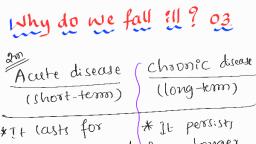 Why do we fall ill? 03
2m
Acute disease
(short-term)
* It lasts for
Chronic disease
(long-term)
* It persists
longer